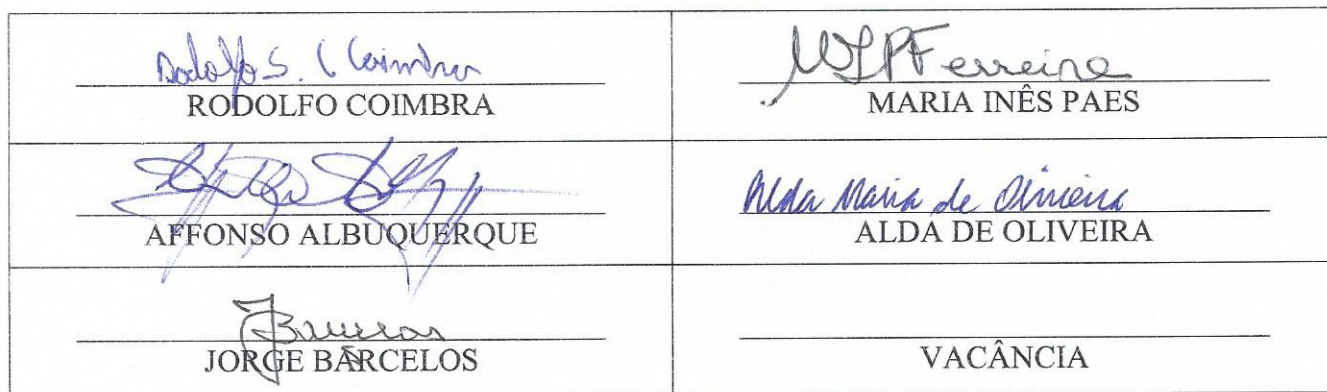 Rodolfo S. C Coimbra
RODOLFO COIMBRA
MIPFerreira
MARIA INÊS PAES
AFFONSO ALBUQUERQUE
Alda Maria de Oliveira
ALDA DE OLIVEIRA
JBarcelos
JORGE BARCELOS
VACÂNCIA